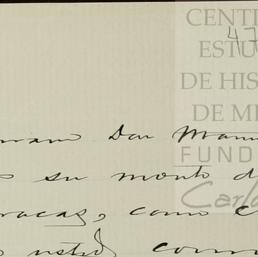 CENTE
47
ESTU
DE HIS
DE ME
FUND
Carlo
Don Manu
su monto d
racas, como c
usted, como